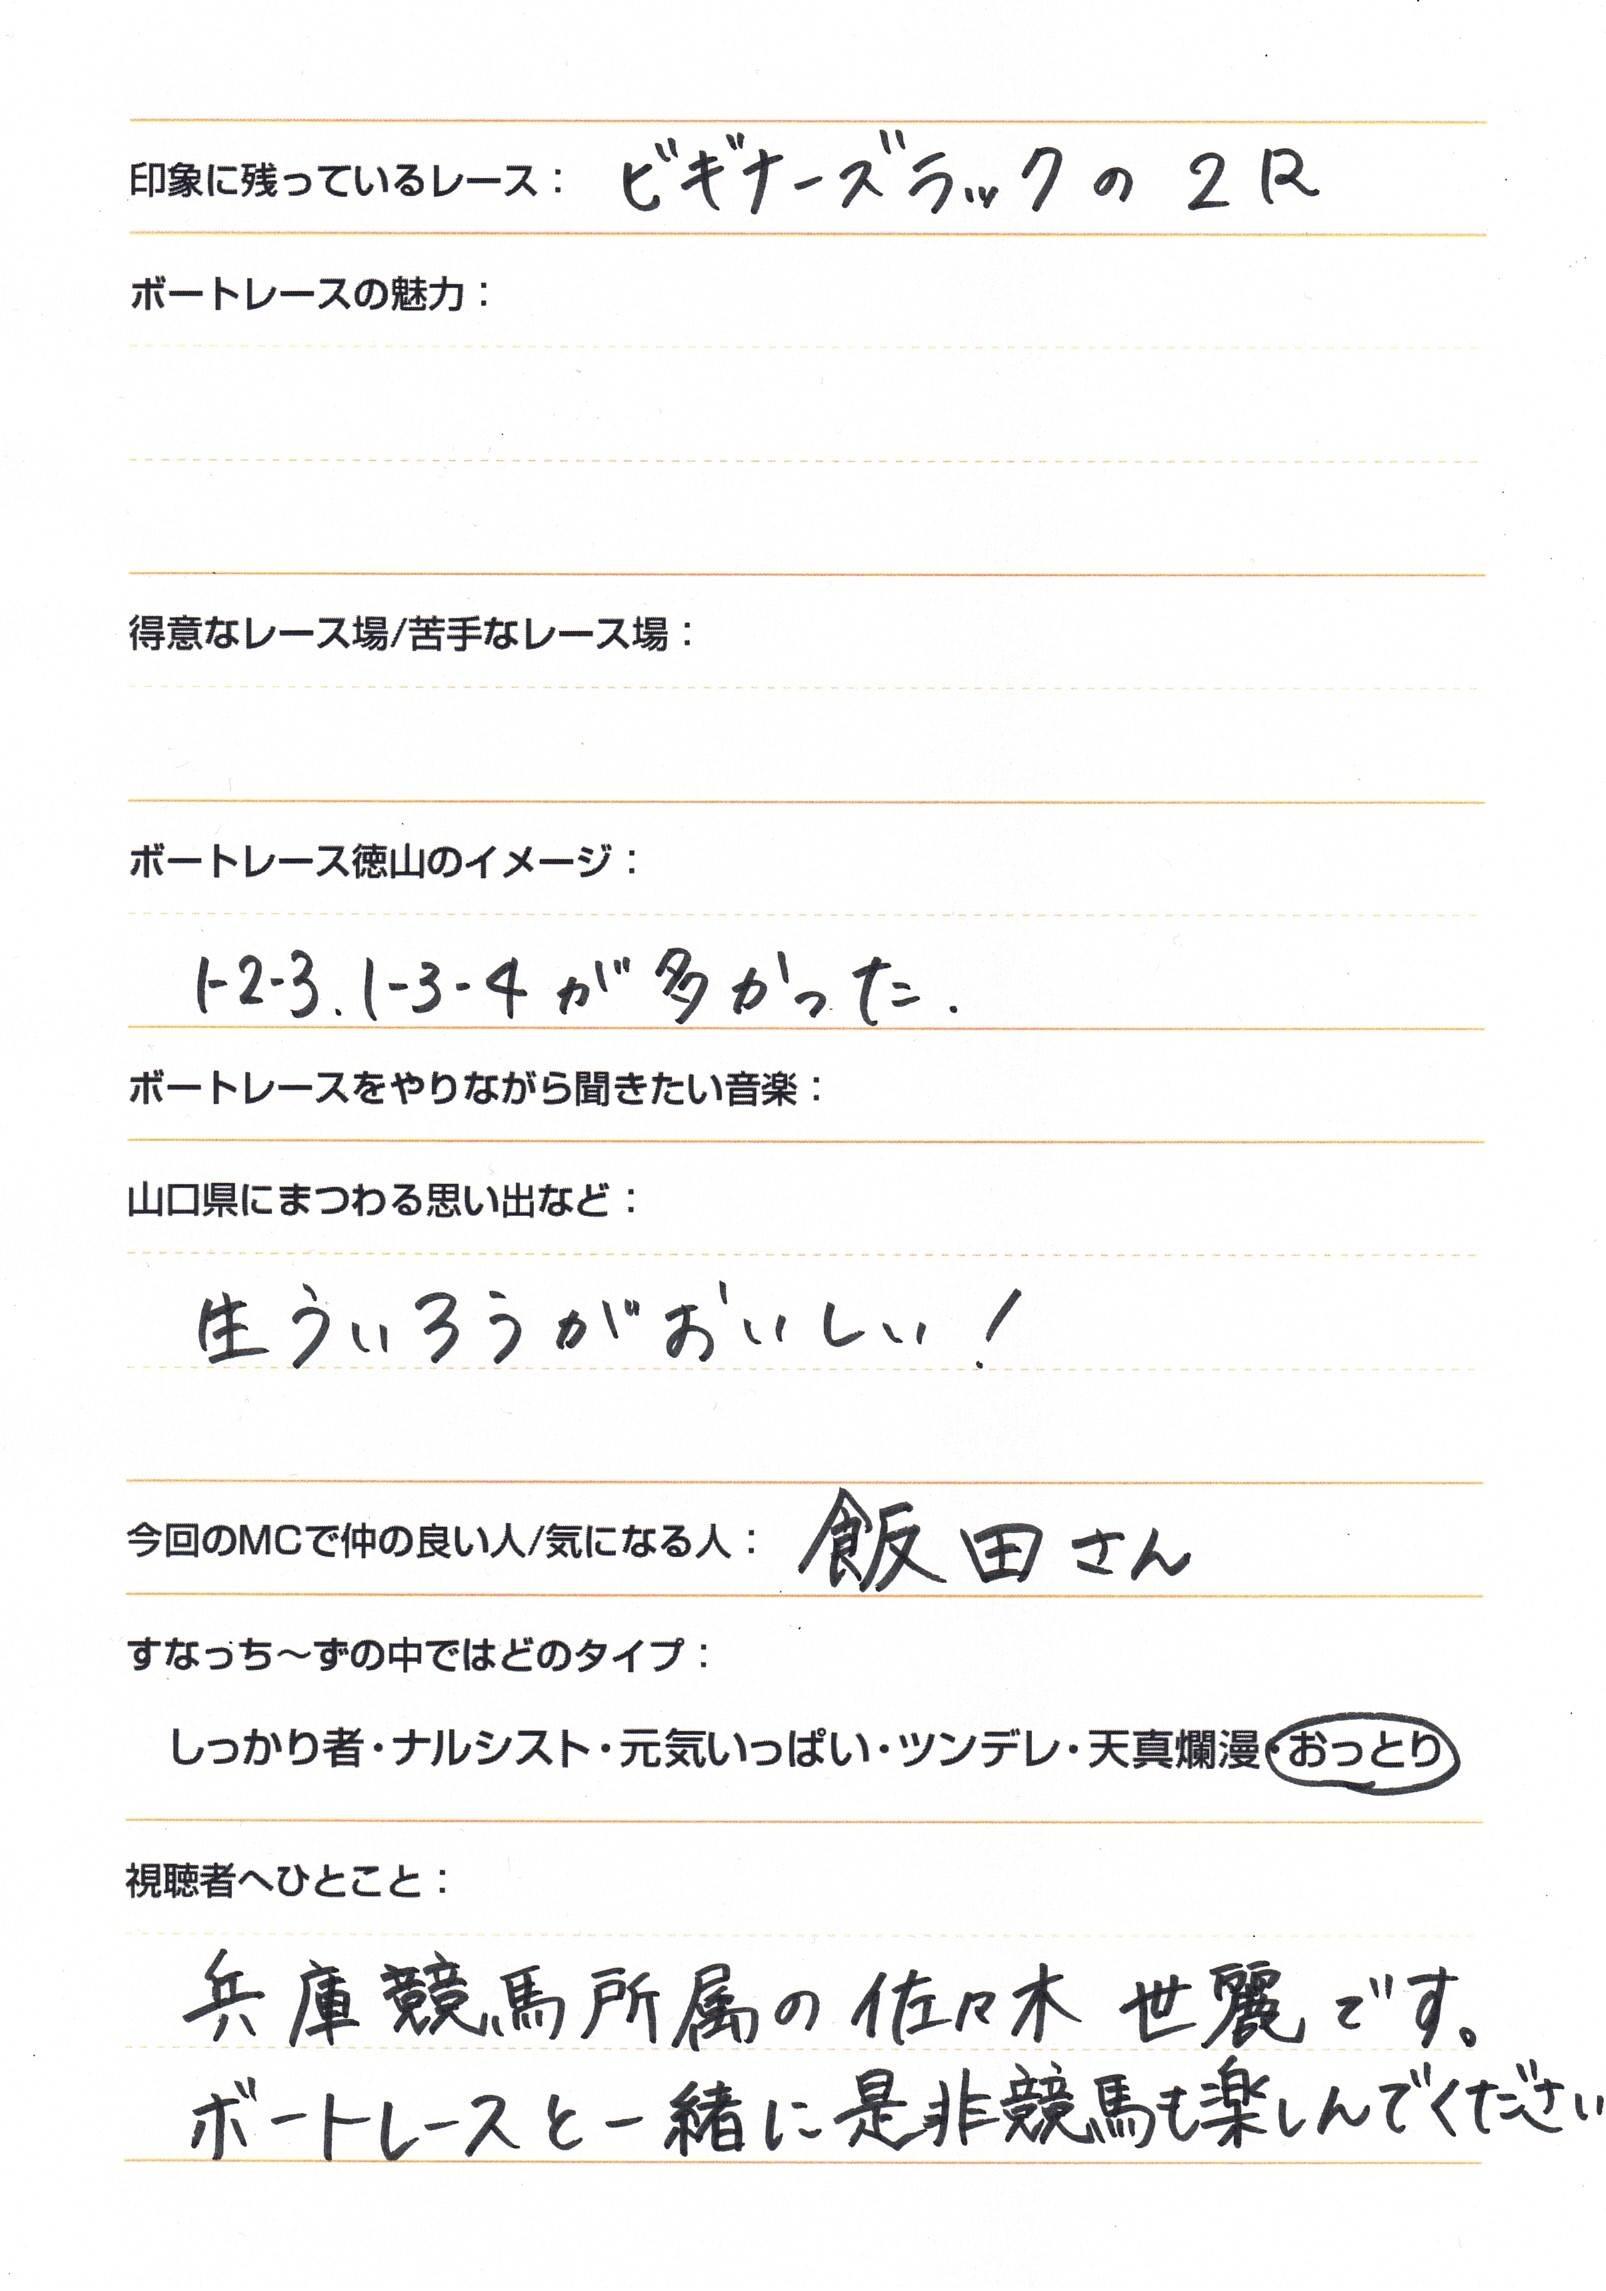 印象に残っているレース： ビギナーズラックの 2R
ボートレースの魅力：
得意なレース場/苦手なレース場：
ボートレース徳山のイメージ：
1-2-3. 1-3-4が多かった.
ボートレースをやりながら聞きたい音楽：
山口県にまつわる思い出など：
生ういろうがおいしい！
今回のMCで仲の良い人/気になる人： 飯田さん
すなっち～ずの中ではどのタイプ：
しっかり者・ナルシスト・元気いっぱい・ツンデレ・天真爛漫・おっとり
視聴者へひとこと：
兵庫競馬所属の佐々木 世麗です。
ボートレースと一緒に是非競馬も楽しんでください